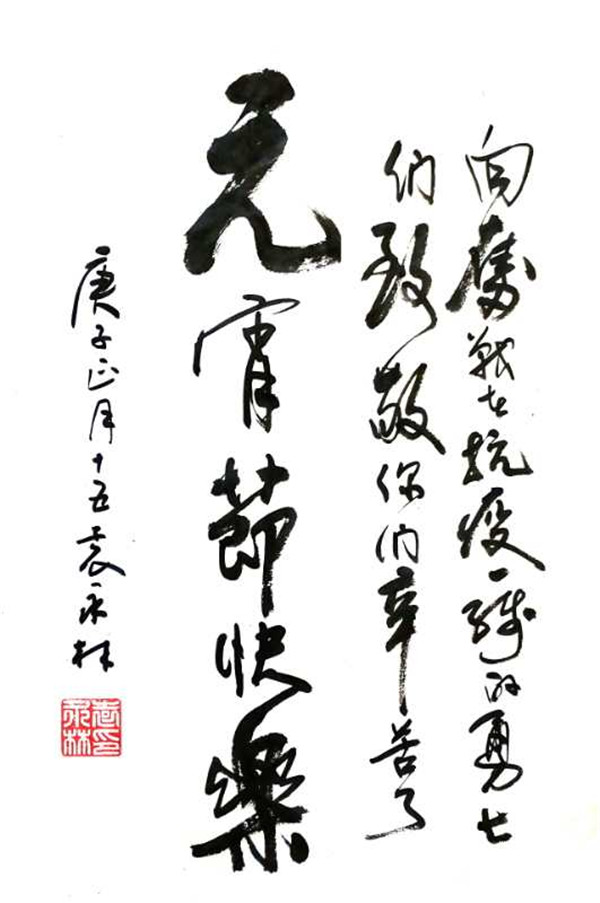 向奮戰在抗疫一線的勇士
们致敬你们辛苦了
元宵節快樂
庚子正月十五袁永林
袁永林印